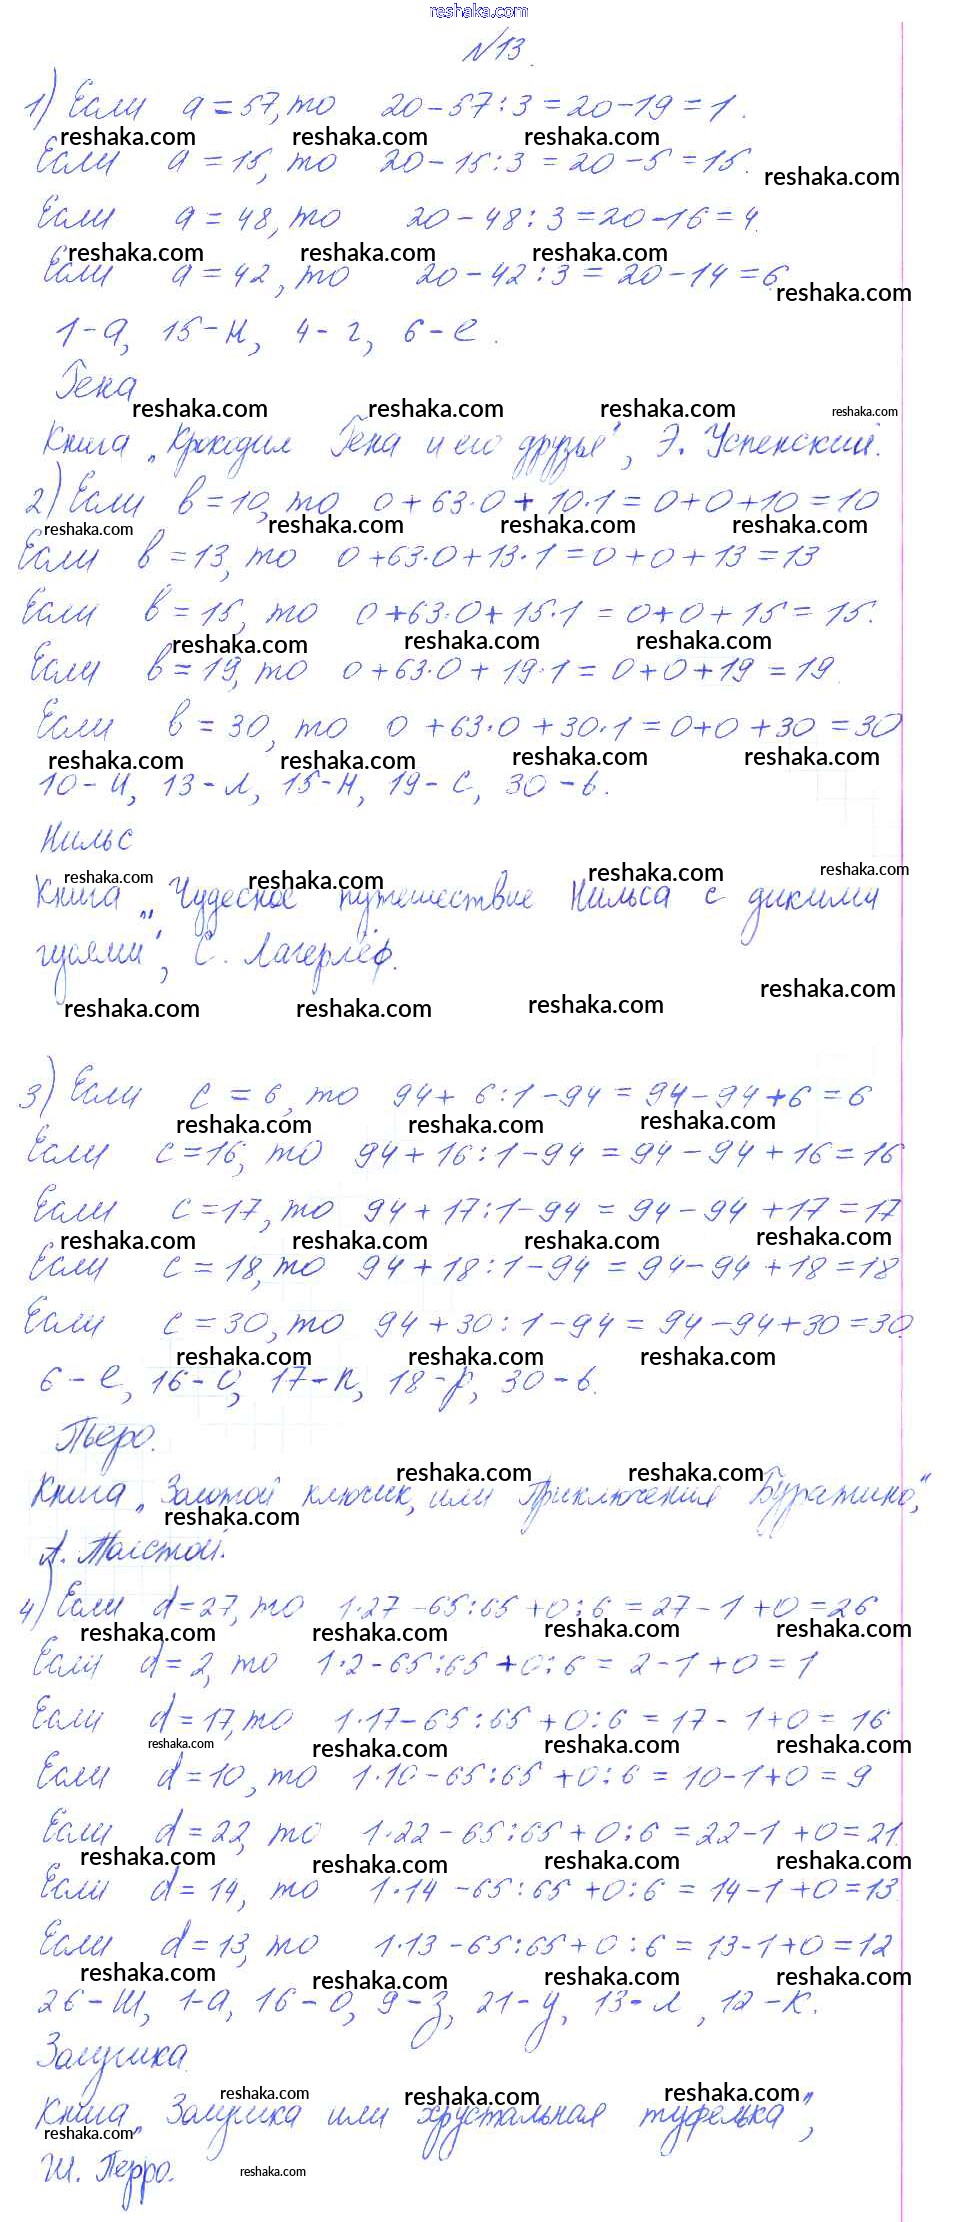 reshaka.com
№13.
1) Если a=57, то 20-57:3=20-19=1.
reshaka.com reshaka.com reshaka.com
Если a=15, то 20-15:3=20-5=15.
reshaka.com
Если a=48, то 20-48:3=20-16=4.
reshaka.com reshaka.com reshaka.com
Если a=42, то 20-42:3=20-14=6
reshaka.com
1-а, 15-н, 4-г, 6-е.
Гена
reshaka.com reshaka.com reshaka.com reshaka.com
Книга „Крокодил Гена и его друзья", Э. Успенский.
2) Если b=10, то 0+63·0+10·1=0+0+10=10
reshaka.com reshaka.com reshaka.com reshaka.com
Если b=13, то 0+63·0+13·1=0+0+13=13
Если b=15, то 0+63·0+15·1=0+0+15=15.
reshaka.com reshaka.com reshaka.com
Если b=19, то 0+63·0+19·1=0+0+19=19.
Если b=30, то 0+63·0+30·1=0+0+30=30
reshaka.com reshaka.com reshaka.com reshaka.com
10-и, 13-л, 15-н, 19-с, 30-ь.
Нильс
reshaka.com reshaka.com reshaka.com reshaka.com
Книга „Чудесное путешествие Нильса с дикими
гусями", С. Лагерлёф.
reshaka.com reshaka.com reshaka.com reshaka.com
3) Если c=6, то 94+6:1-94=94-94+6=6
reshaka.com reshaka.com reshaka.com
Если c=16, то 94+16:1-94=94-94+16=16
Если c=17, то 94+17:1-94=94-94+17=17
reshaka.com reshaka.com reshaka.com reshaka.com
Если c=18, то 94+18:1-94=94-94+18=18
Если c=30, то 94+30:1-94=94-94+30=30.
reshaka.com reshaka.com reshaka.com
6-е, 16-о, 17-п, 18-р, 30-ь.
Пьеро.
reshaka.com reshaka.com
Книга „Золотой ключик, или Приключения Буратино",
reshaka.com
А. Толстой.
4) Если d=27, то 1·27-65:65+0:6=27-1+0=26
reshaka.com reshaka.com reshaka.com reshaka.com
Если d=2, то 1·2-65:65+0:6=2-1+0=1
Если d=17, то 1·17-65:65+0:6=17-1+0=16
reshaka.com reshaka.com reshaka.com reshaka.com
Если d=10, то 1·10-65:65+0:6=10-1+0=9
Если d=22, то 1·22-65:65+0:6=22-1+0=21.
reshaka.com reshaka.com reshaka.com reshaka.com
Если d=14, то 1·14-65:65+0:6=14-1+0=13.
Если d=13, то 1·13-65:65+0:6=13-1+0=12
reshaka.com reshaka.com reshaka.com reshaka.com
26-ш, 1-а, 16-о, 9-з, 21-у, 13-л, 12-к.
Золушка.
reshaka.com reshaka.com reshaka.com
Книга „Золушка или хрустальная туфелька",
reshaka.com
Ш. Перро.
reshaka.com